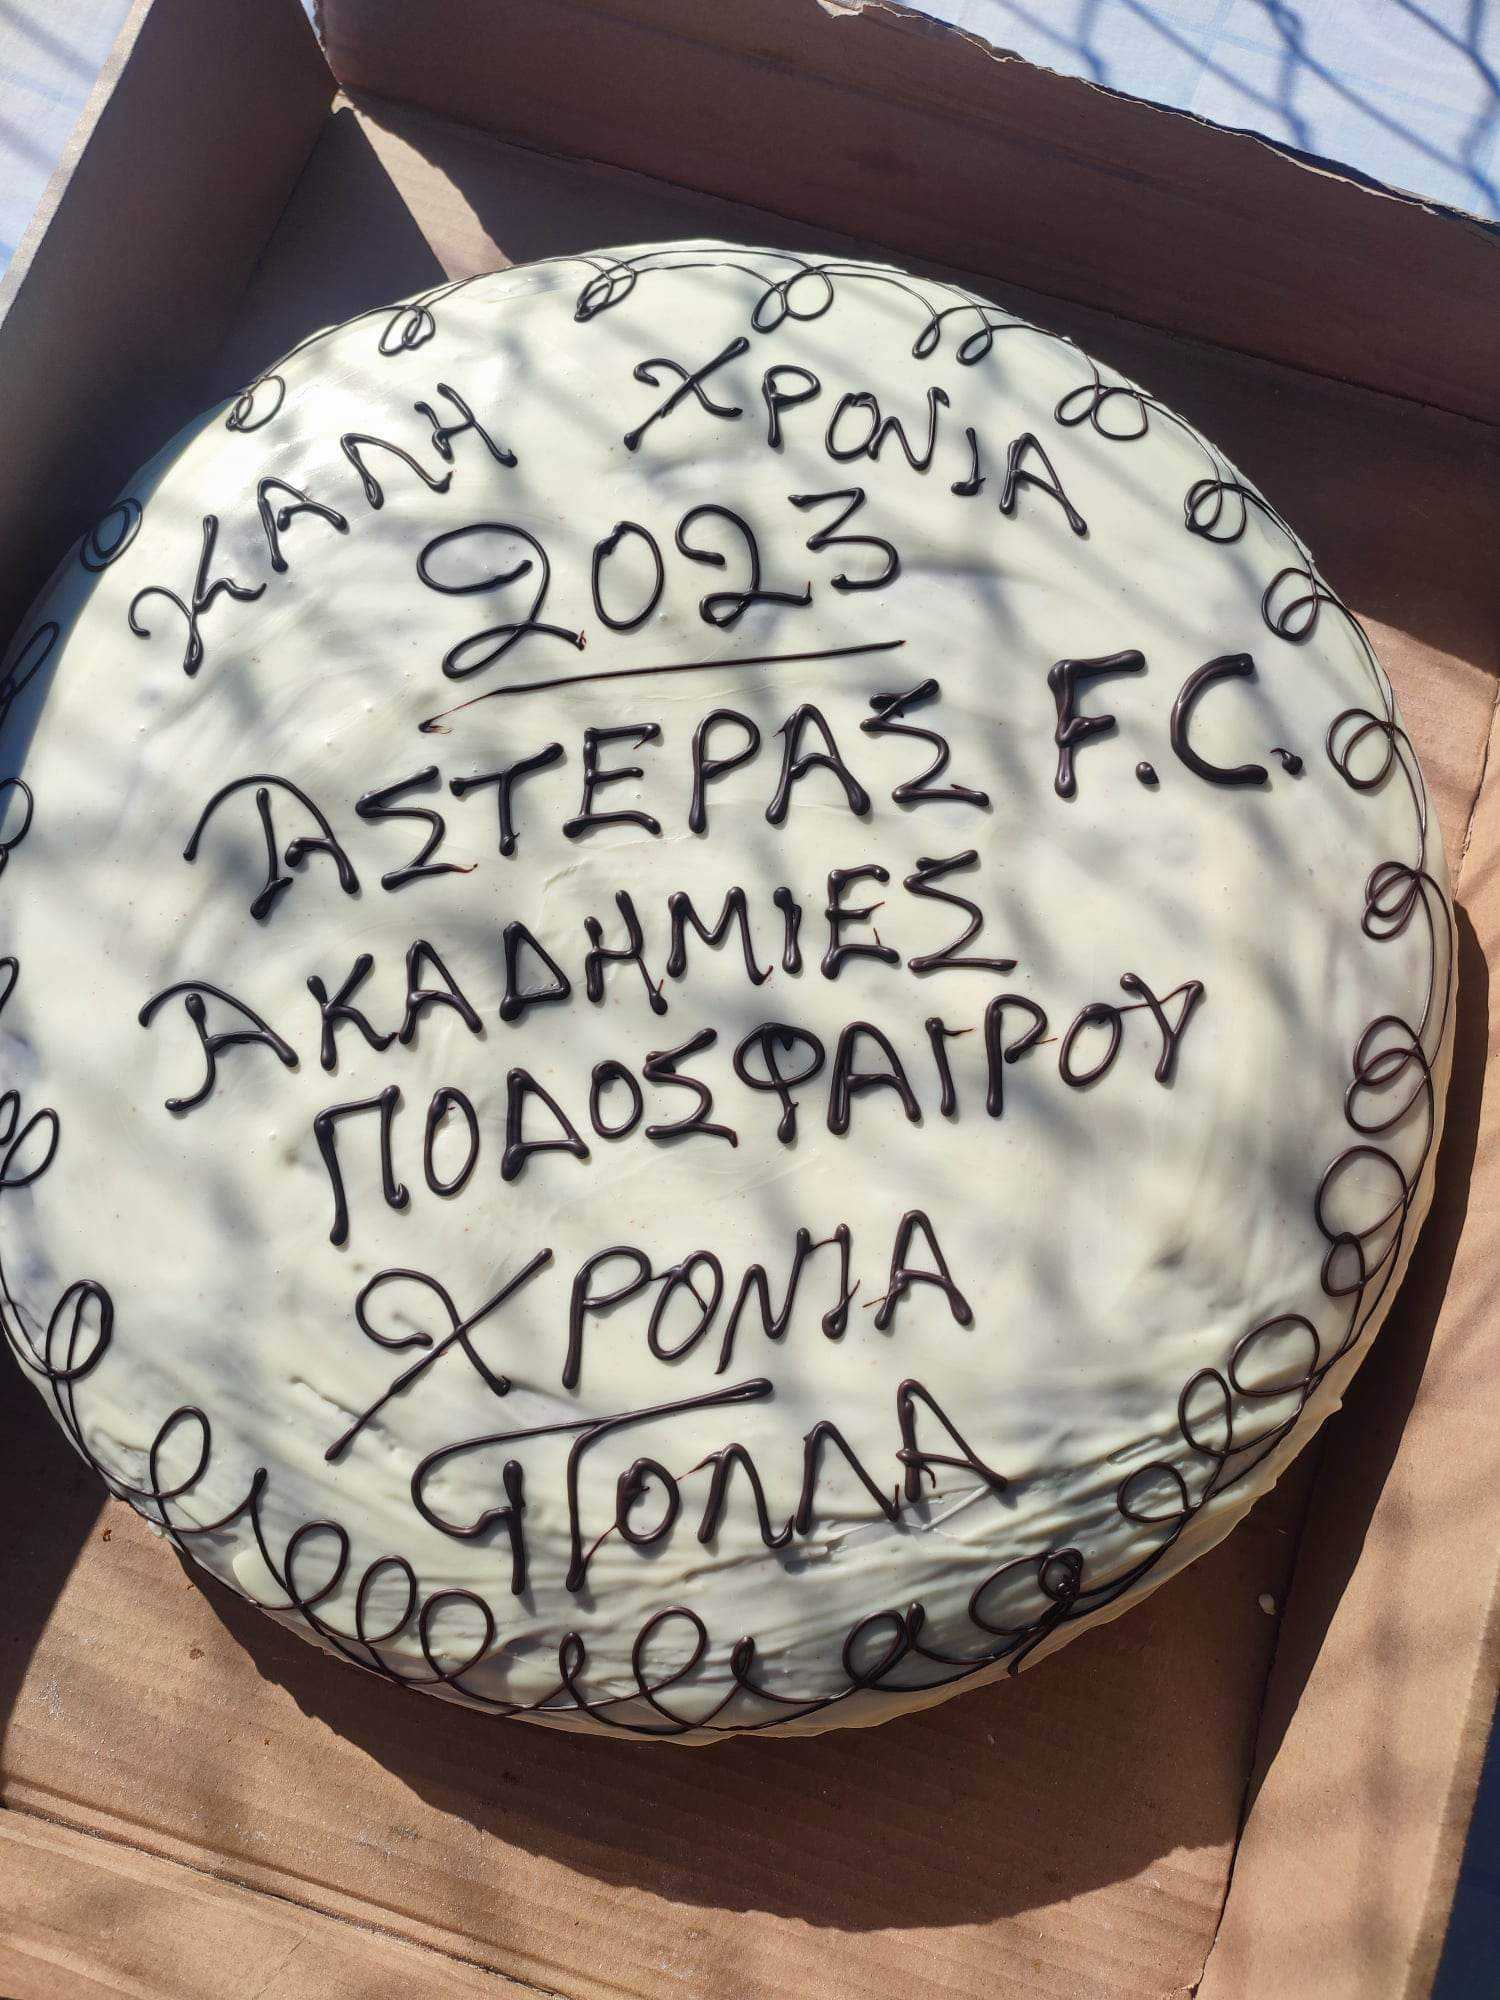 ΚΑΛΗ ΧΡΟΝΙΑ
2023
ΑΣΤΕΡΑΣ F.C.
ΑΚΑΔΗΜΙΕΣ
ΠΟΔΟΣΦΑΙΡΟΥ
ΧΡΟΝΙΑ
ΠΟΛΛΑ